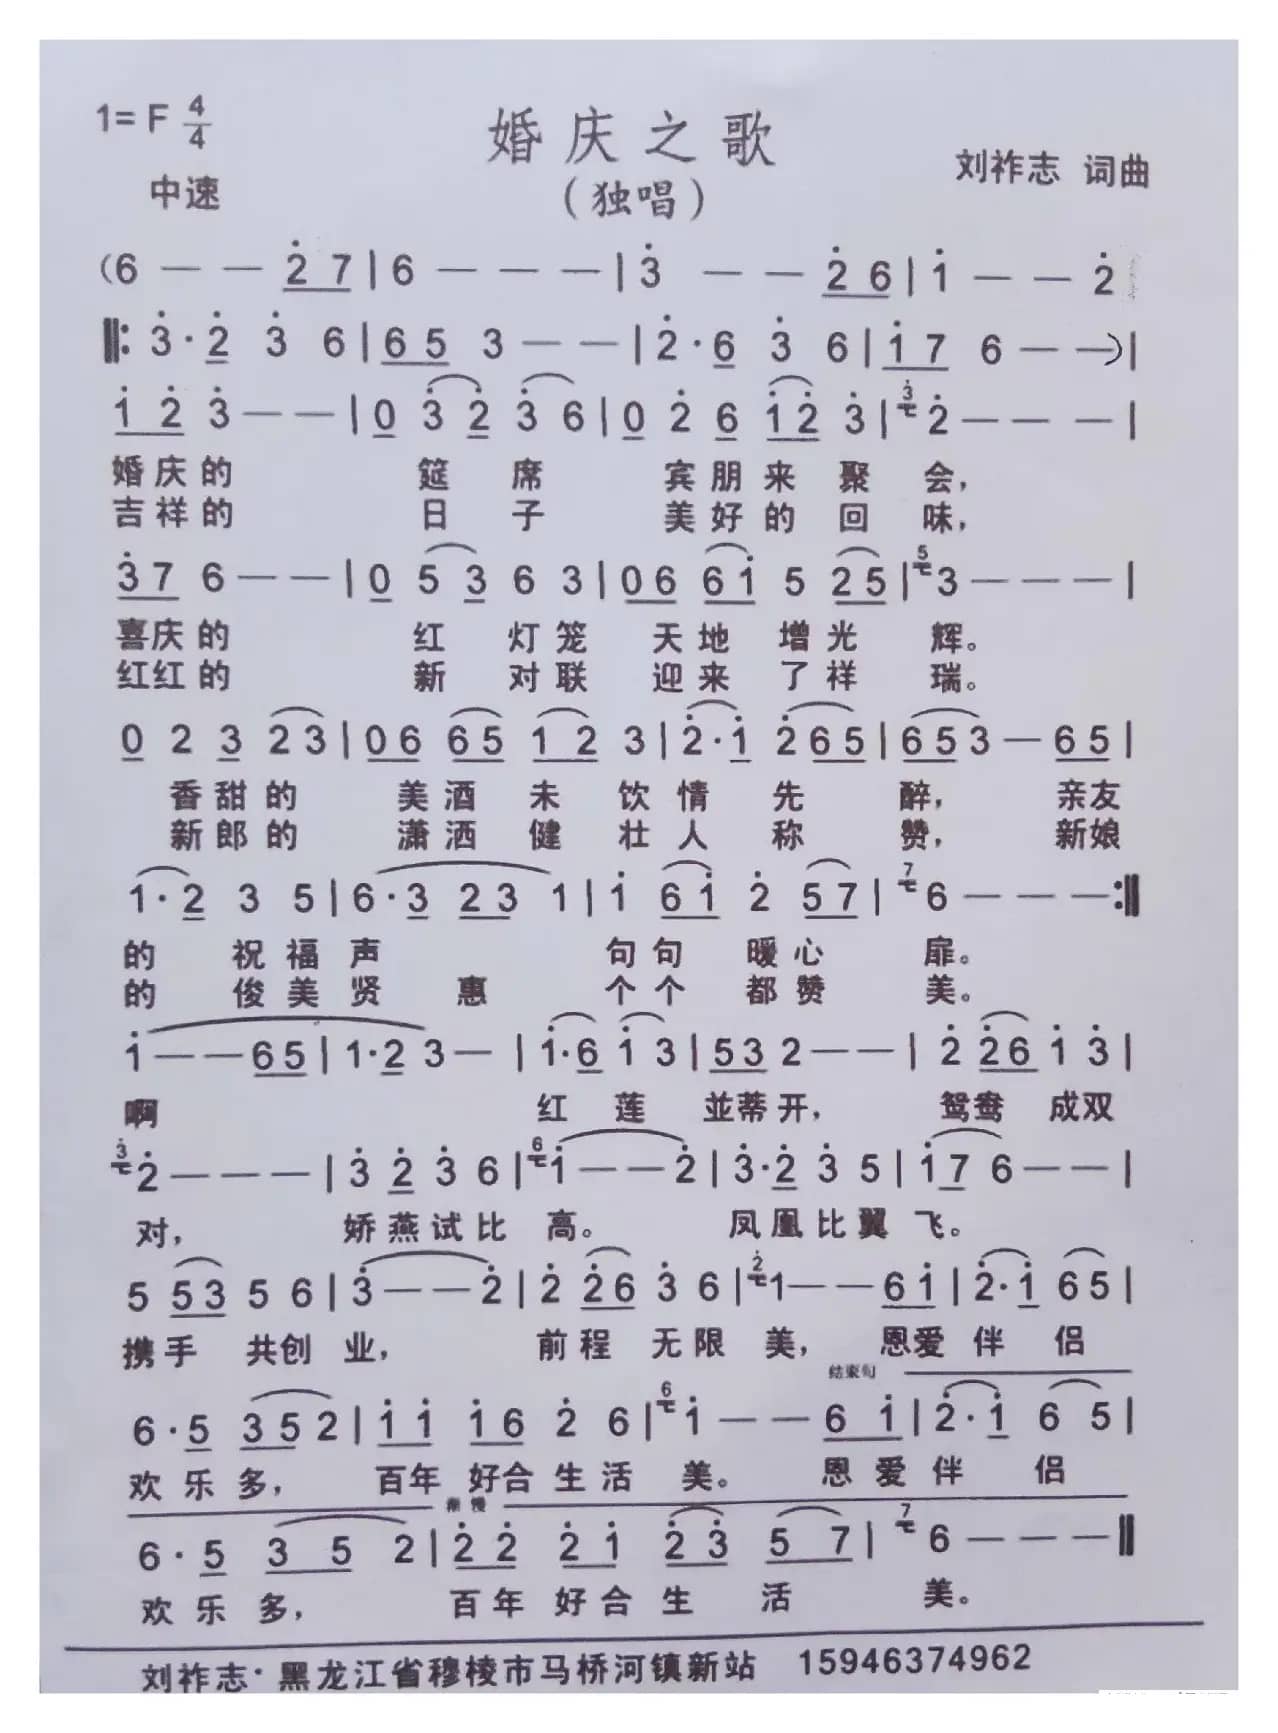 1= F 4/4
婚庆之歌
中速
(独唱)
刘祚志 词曲
(6 — — 2̇ 7 | 6 — — — | 3̇ — — 2̇ 6 | 1̇ — — 2̇
‖: 3̇ · 2̇ 3̇ 6 | 6 5 3 — — | 2̇ · 6 3̇ 6 | 1̇ 7 6 — —) |
1̇ 2̇ 3̇ — — | 0 3̇ 2̇ 3̇ 6 | 0 2̇ 6 1̇ 2̇ 3̇ | 3̇ 2̇ — — — |
婚庆的 筵席 宾朋来聚会,
吉祥的 日子 美好的回味,
3̇ 7 6 — — | 0 5 3 6 3 | 0 6 6 1̇ 5 2 5 | 5 3 — — — |
喜庆的 红灯笼 天地增光辉。
红红的 新对联 迎来了祥瑞。
0 2 3 2 3 | 0 6 6 5 1 2 3 | 2̇ · 1̇ 2̇ 6 5 | 6 5 3 — 6 5 |
香甜的 美酒未饮情先醉, 亲友
新郎的 潇洒健壮人称赞, 新娘
1 · 2 3 5 | 6 · 3 2 3 1 | 1̇ 6 1̇ 2̇ 5 7 | 7 6 — — — :‖
的祝福声 句句暖心扉。
的俊美贤惠 个个都赞美。
1̇ — — 6 5 | 1 · 2 3 — | 1̇ · 6 1̇ 3 | 5 3 2 — — | 2̇ 2̇ 6 1̇ 3̇ |
啊 红莲並蒂开, 鸳鸯成双
3̇ 2̇ — — — | 3̇ 2̇ 3̇ 6 | 6 1̇ — — 2̇ | 3̇ · 2̇ 3̇ 5 | 1̇ 7 6 — — |
对, 娇燕试比高。 凤凰比翼飞。
5 5 3 5 6 | 3̇ — — 2̇ | 2̇ 2̇ 6 3̇ 6 | 2̇ 1 — — 6 1̇ | 2̇ · 1̇ 6 5 |
携手共创业, 前程无限美, 恩爱伴侣
结束句
6 · 5 3 5 2 | 1̇ 1̇ 1̇ 6 2̇ 6 | 6 1̇ — — 6 1̇ | 2̇ · 1̇ 6 5 |
欢乐多, 百年好合生活美。 恩爱伴侣
渐慢
6 · 5 3 5 2 | 2̇ 2̇ 2̇ 1̇ 2̇ 3̇ 5 7 | 7 6 — — — ‖
欢乐多, 百年好合生活美。
刘祚志·黑龙江省穆棱市马桥河镇新站 15946374962